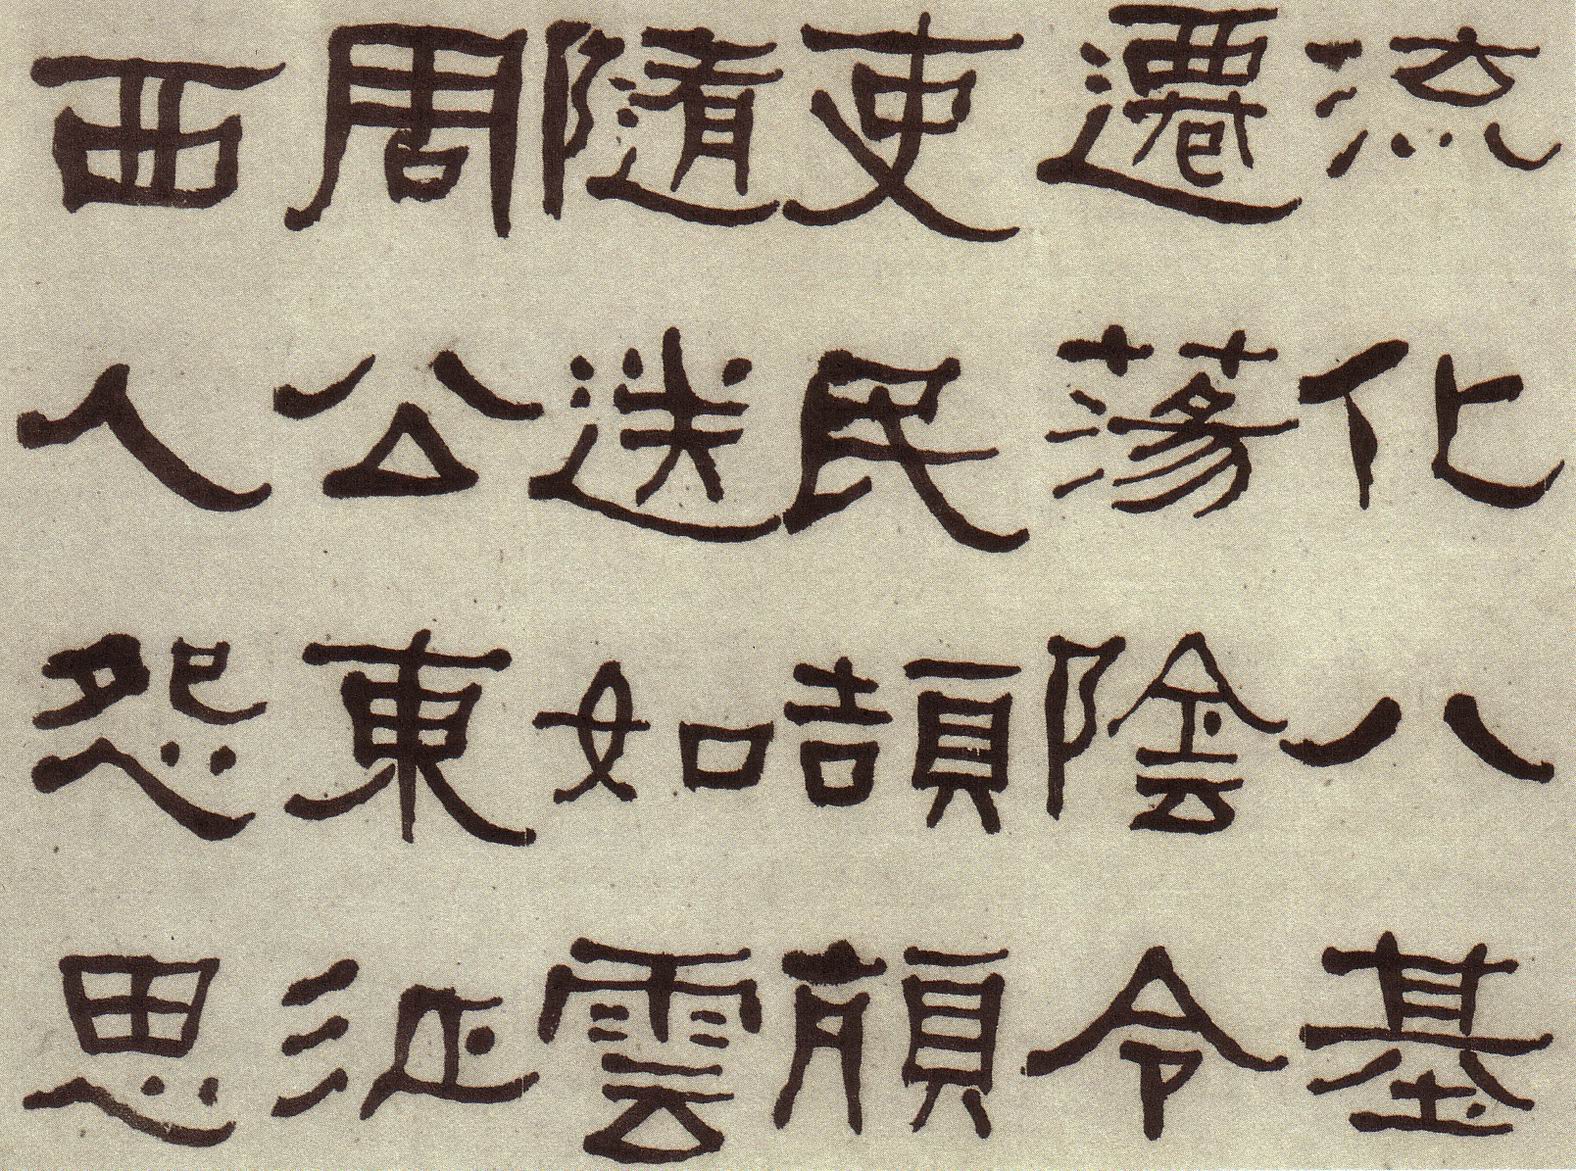 流化八基
遷蕩陰令
吏民頡頏
隨送如雲
周公東征
西人怨思